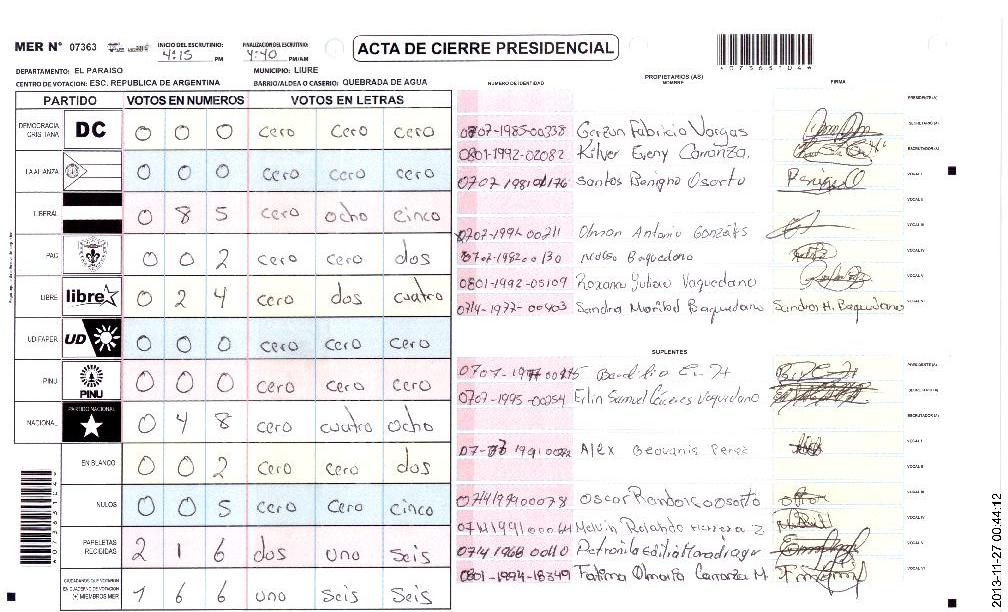 MER N° 07363 INICIO DEL ESCRUTINIO: 4:15 PM FINALIZACION DEL ESCRUTINIO: 4:40 PM/AM
ACTA DE CIERRE PRESIDENCIAL
DEPARTAMENTO: EL PARAISO MUNICIPIO: LIURE
CENTRO DE VOTACION: ESC. REPUBLICA DE ARGENTINA BARRIO/ALDEA O CASERIO: QUEBRADA DE AGUA
PARTIDO VOTOS EN NUMEROS VOTOS EN LETRAS
DEMOCRACIA CRISTIANA DC 0 0 0 cero cero cero
LA ALIANZA 0 0 0 cero cero cero
LIBERAL 0 8 5 cero ocho cinco
PAC 0 0 2 cero cero dos
LIBRE libre 0 2 4 cero dos cuatro
UD/FAPER UD 0 0 0 cero cero cero
PINU PINU 0 0 0 cero cero cero
NACIONAL PARTIDO NACIONAL 0 4 8 cero cuatro ocho
EN BLANCO 0 0 2 cero cero dos
NULOS 0 0 5 cero cero cinco
PAPELETAS RECIBIDAS 2 1 6 dos uno seis
CIUDADANOS QUE VOTARON EN CUADERNO DE VOTACION (+) MIEMBROS MER 1 6 6 uno seis seis
NUMERO DE IDENTIDAD PROPIETARIOS (AS) NOMBRE FIRMA
PRESIDENTE(A)
0707-1985-00338 Gerzun Fabricio Vargas SECRETARIO(A)
0801-1992-02082 Kilver Eveny Carranza. ESCRUTADOR(A)
Santos Benigno Osorto VOCAL I
VOCAL II
Antonio Gonzáles VOCAL III
Baquedano VOCAL IV
0801-1992-05109 Roxana Yuliau Vaquedano VOCAL V
0714-1977-00403 Sandra Maribel Baquedano Sandra M. Baquedano VOCAL VI
SUPLENTES
PRESIDENTE(A)
0707-1995-00254 Erlin Samuel Cáceres Vaquedano SECRETARIO(A)
ESCRUTADOR(A)
Alex Geovanis Perez VOCAL I
VOCAL II
0714199900078 Oscar Osorto VOCAL III
Melvin Rolando Herrera Z VOCAL IV
0714 1968 00110 Petronila VOCAL V
0801-1994-18349 Fatima Carranza M. VOCAL VI
2013-11-27 00:44:12